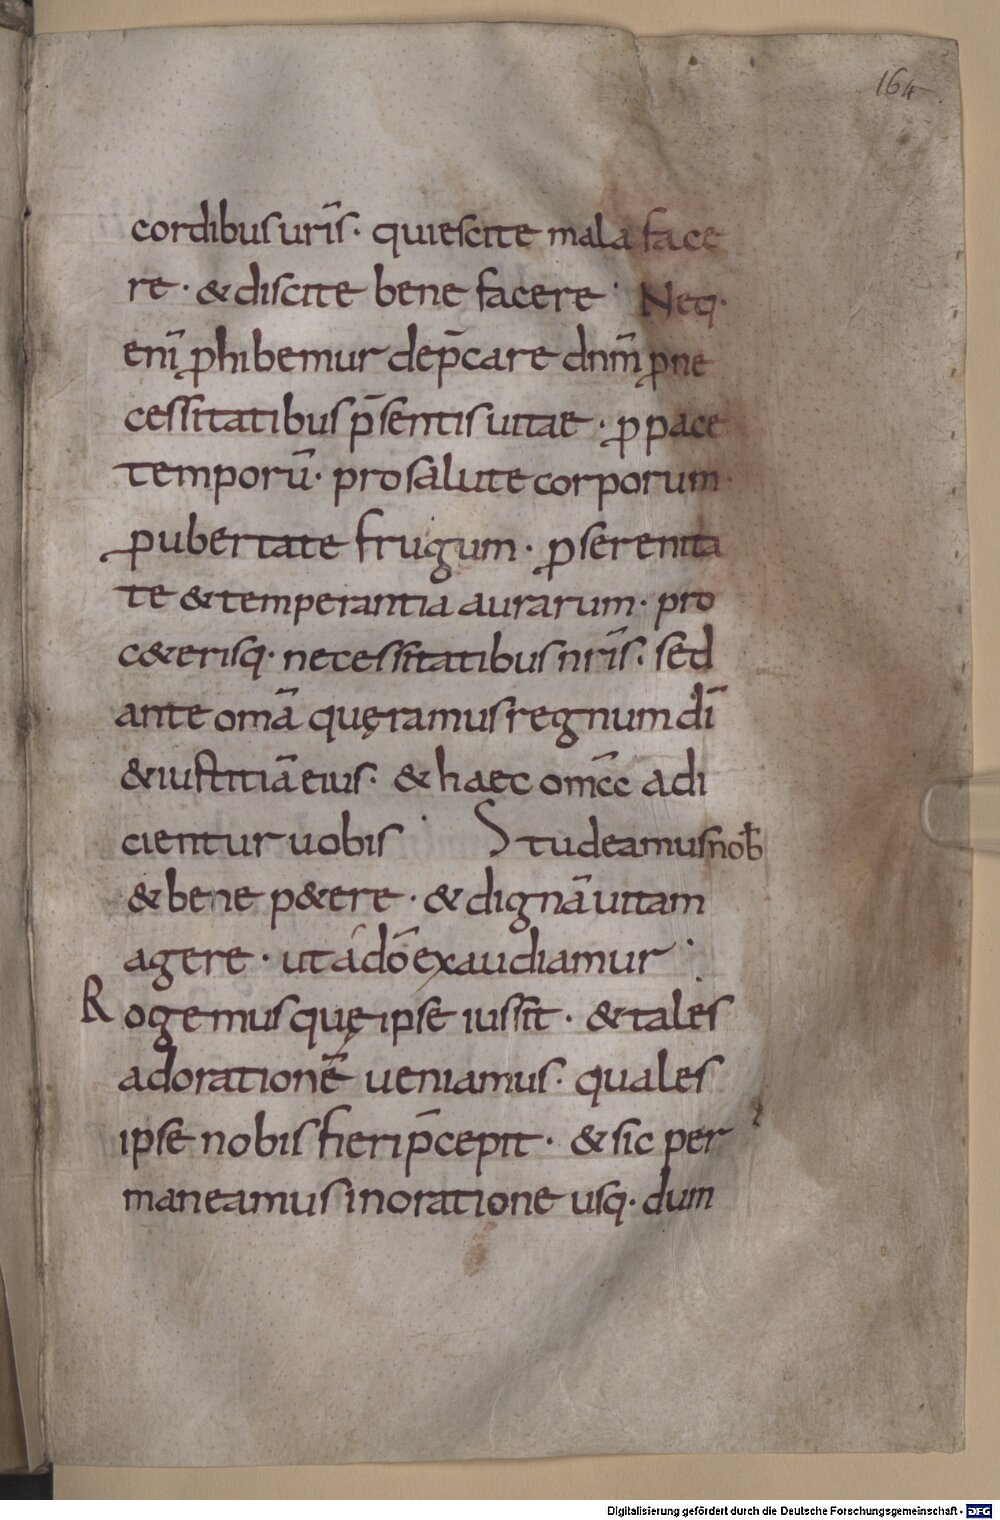 164
cordibus ur̄is · quiescite mala face
re · & discite bene facere · Neq·
enī ꝓhibemur dep̄care dnm̄ ꝓ ne
cessitatibus p̄sentis uitae · ꝓ pace
temporū · pro salute corporum ·
ꝓ ubertate frugum · ꝓ serenita
te & temperantia aurarum · pro
c&erisq· necessitatibus nr̄is · sed
ante omā quęramus regnum dī
& iustitiā eius · & haec om̄ adi
cientur uobis · Studeamus nob̄
& bene p&ere · & dignā uitam
agere · ut a dō exaudiamur ·
Rogemus quę ipse iussit · & tales
adorationē ueniamus · quales
ipse nobis fieri p̄cepit · & sic per
maneamus in oratione usq· dum
Digitalisierung gefördert durch die Deutsche Forschungsgemeinschaft - DFG